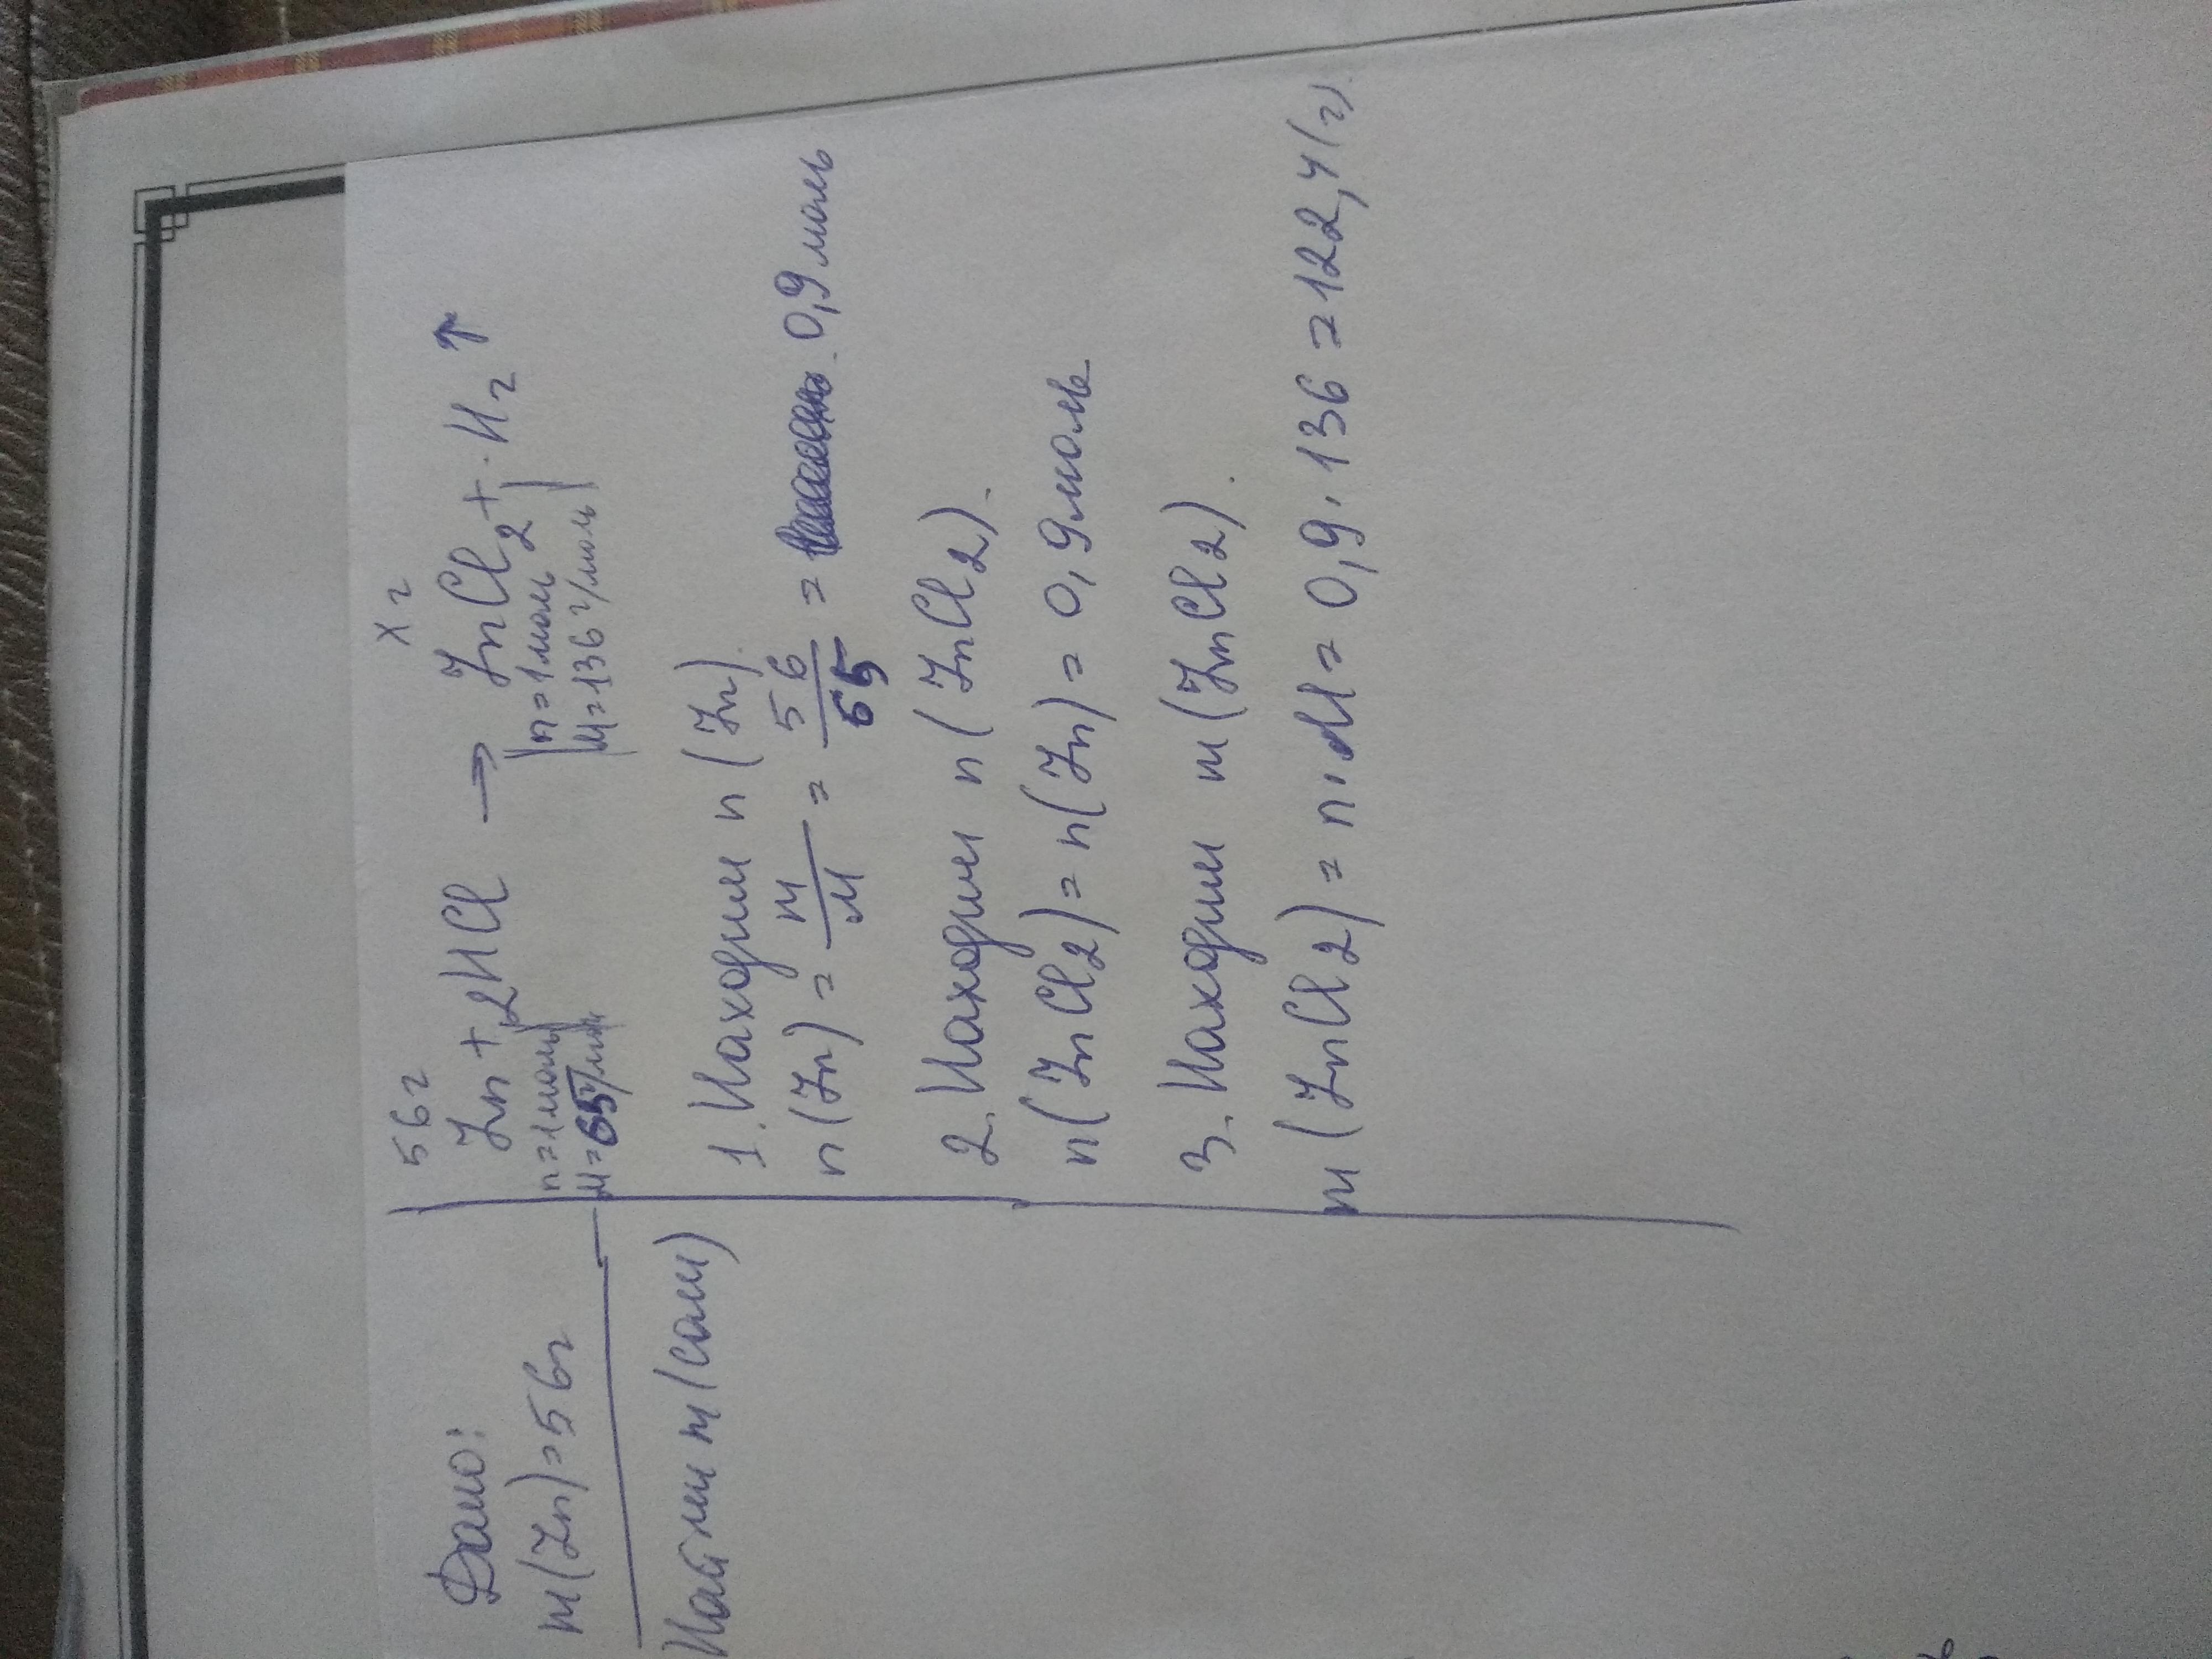 Дано:
m(Zn)=56г
Найти m(соли)
56г xг
Zn + 2HCl → ZnCl2 + H2↑
n=1моль n=1моль
M=65г/моль M=136г/моль
1. Находим n(Zn).
n(Zn) = m/M = 56/65 = 0,9 моль
2. Находим n(ZnCl2).
n(ZnCl2) = n(Zn) = 0,9 моль
3. Находим m(ZnCl2).
m(ZnCl2) = n·M = 0,9·136 = 122,4(г).